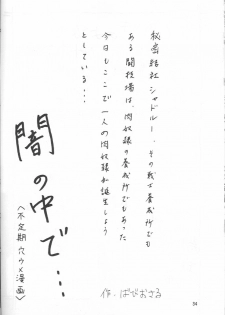 秘密結社シャドルー、その戦士養成所でも
ある闘技場は、肉奴隷の養成所でもあった
今日もここで一人の肉奴隷が誕生しよう
としている…
闇の中で…
〈不定期穴ウメ漫画〉
作・ばびおさる
34